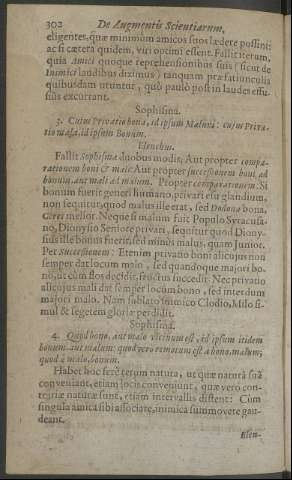 302 De Augmentis Scientiarum,
eligentes, quæ minimùm amicos suos lædere possint:
ac si cætera quidem, viri optimi essent. Fallit iterum,
quia Amici quoque reprehensionibus suis (sicut de
Inimici laudibus diximus) tanquam præfatiunculis
quibusdam utuntur, quò paulò post in laudes effu-
sius excurrant.
Sophisma.
3. Cujus Privatio bona, id ipsum Malum: cujus Priva-
tio mala, id ipsum Bonum.
Elenchus.
Fallit Sophisma duobus modis; Aut propter compa-
rationem boni & mali: Aut propter successionem boni, ad
bonum, aut mali ad malum. Propter comparationem: Si
bonum fuerit generi humano, privari esu glandium,
non sequitur, quod malus ille erat, sed Dodona bona,
Ceres melior. Neque si malum fuit Populo Syracusa-
no, Dionysio Seniore privari, sequitur quod Diony-
sius ille bonus fuerit, sed minus malus, quam Junior.
Per Successionem: Etenim privatio boni alicujus non
semper dat locum malo, sed quandoque majori bo-
no, ut cùm flos decidit, fructus succedit: Nec privatio
alicujus mali dat semper locum bono, sed interdum
majori malo. Nam sublato inimico Clodio, Milo si-
mul & segetem gloriæ perdidit.
Sophisma.
4. Quod bono, aut malo vicinum est, id ipsum itidem
bonum, aut malum: quod verò remotum est a bono, malum;
quod à malo, bonum.
Habet hoc ferè rerum natura, ut quæ naturâ suâ
conveniant, etiam locis conveniant, quæ verò con-
trariæ naturæ sunt, etiam intervallis distent: Cùm
singula amica sibi associare, inimica summovere gau-
deant.
Elen-